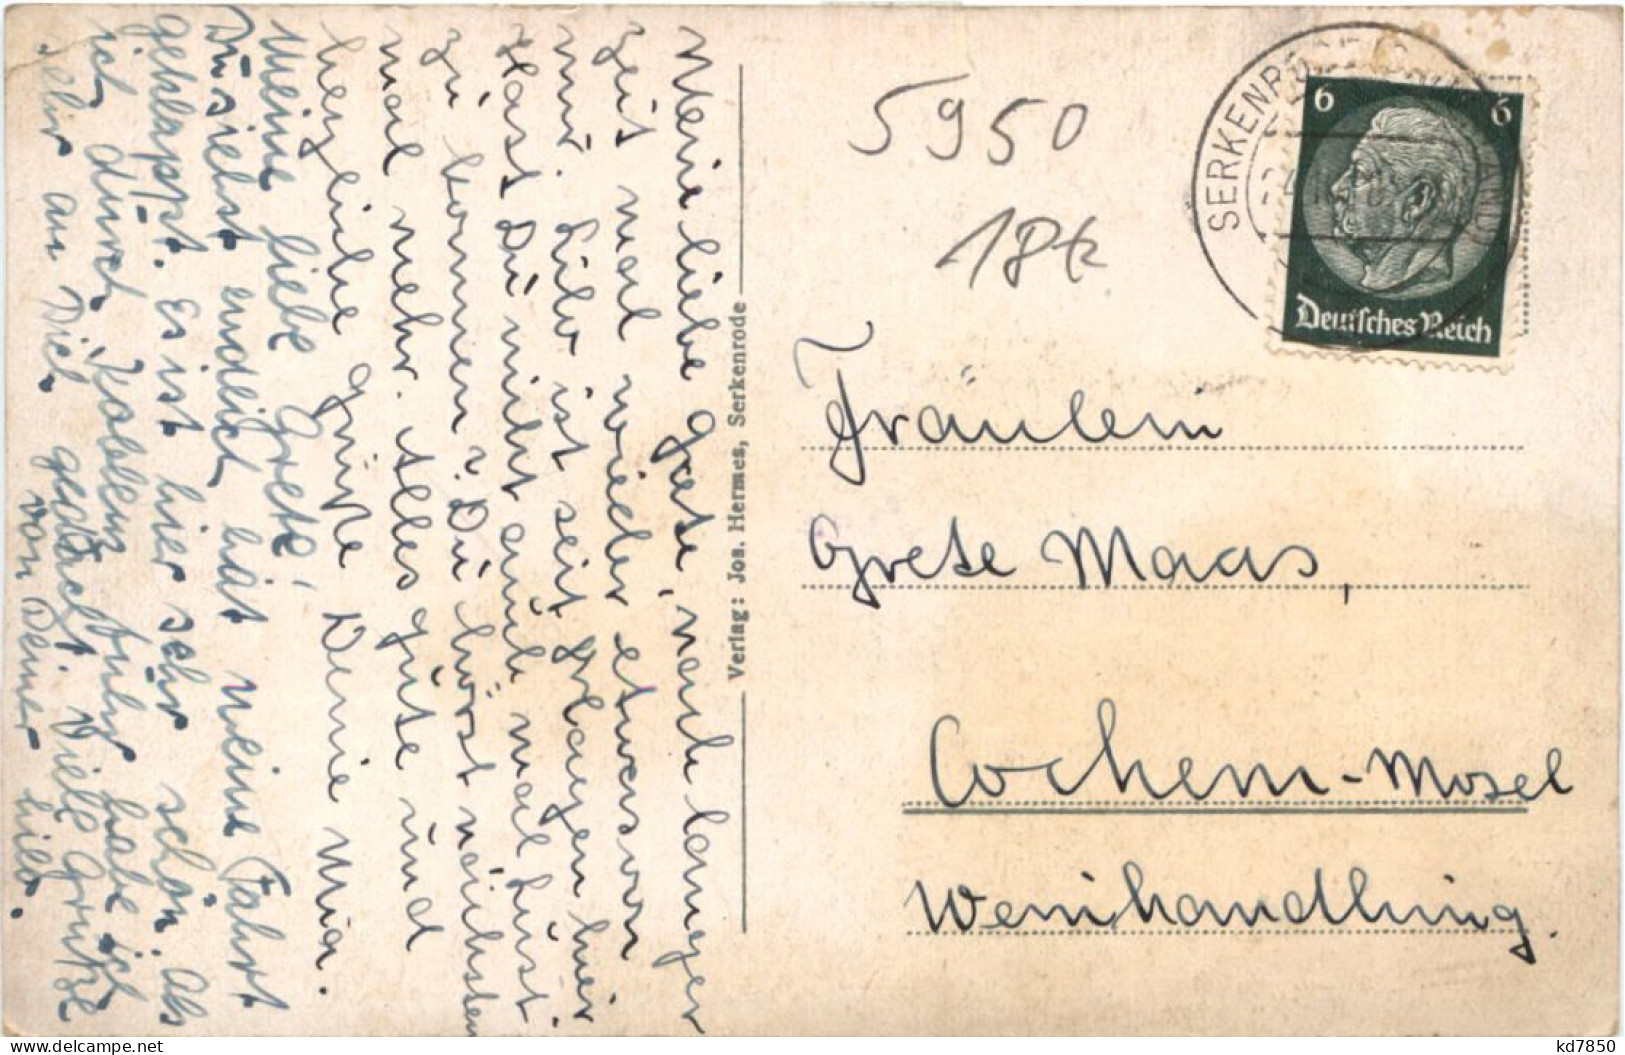 Meine liebe Grete, nach langer
Zeit mal wieder etwas von
mir. Lilo ist seit   hier
Hast Du nicht auch mal Lust
zu kommen? Du hörst nächsten
mal mehr. Alles gute und
herzliche Grüße Deine Mia.
Meine liebe Grete!
Du siehst endlich hat meine Fahrt
geklappt. Es ist hier sehr schön. Als
ich durch Koblenz fuhr habe ich
sehr an Dich gedacht. Viele Grüße
von Deiner Lilo.
Verlag: Jos. Hermes, Serkenrode
5950
18tz
SERKENRODE
6 6
Deutsches Reich
Fräulein
Grete Maas,
Cochem-Mosel
Weinhandlung.
kd7850